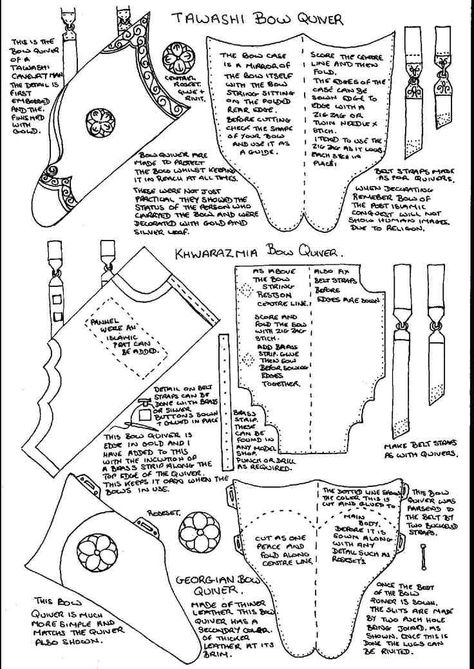 TAWASHI BOW QUIVER
THIS IS THE
BOW QUIVER
OF A
TAWASHI
THE DETAIL IS
FIRST
EMBOSSED
AND THE.
FINISHED
WITH
GOLD.
CENTRE
ROSSET.
GLUE &
RIVIT.
THE BOW CASE
IS A MIRROR OF
THE BOW ITSELF
WITH THE BOW
STRING SITTING
ON THE FOLDED
REAR EDGE.
BEFORE CUTTING
CHECK THE SHAPE
OF YOUR BOW
AND USE IT AS
A GUIDE.
SCORE THE CENTRE
LINE AND THEN
FOLD.
THE EDGES OF THE
CASE CAN BE
SOWN EDGE TO
EDGE WITH A
ZIG ZAG OR
TWIN NEEDLE X
STICH.
I TEND TO USE THE
ZIG ZAG AS IT LOOKS
PLACE!
BOW QUIVER ARE
MADE TO PROTECT
THE BOW WHILST KEEPING
IT IN REACH AT ALL TIMES.
THESE WERE NOT JUST
PRACTICAL, THEY SHOWED THE
STATUS OF THE PERSON WHO
CARRYED THE BOW AND WERE
DECORATED WITH GOLD AND
SILVER LEAF.
BELT STRAPS MADE
AS FOR QUIVERS.
WHEN DECORATING
REMEBER BOW OF
THE POST ISLAMIC
CONQUEST WILL NOT
SHOW HUMAN IMAGES
DUE TO RELIGON.
KHWARAZMIA BOW QUIVER.
PANHEL
WERE AN
ISLAMIC
PART CAN
BE ADDED.
AS ABOVE
THE BOW
STRING
RESTS ON
CENTRE LINE.
SCORE AND
FOLD THE BOW
WITH ZIG ZAG
STICH.
ADD BRASS
STRIP. GLUE
THEN SOW
BEFOR SOWING
EDGES
TOGETHER.
ALSO FIX
BELT STRAPS
BEFORE
EDGES ARE SOWN
DETAIL ON BELT
STRAPS CAN BE
DONE WITH BRASS
OR SILVER
BUTTONS SOWN
& GLUED IN PLACE
THIS BOW QUIVER IS
EDGE IN GOLD AND I
HAVE ADDED TO THIS
WITH THE INCLUTION OF
A BRASS STRIP ALONG THE
TOP EDGE OF THE QUIVER.
THIS KEEPS IT OPEN WHEN THE
BOWS IN USE.
BRASS
STRIP.
THESE
CAN BE
FOUND IN
ANY MODEL
SHOP.
PUNCH OR DRILL
AS REQUIRED.
MAKE BELT STRAPS
AS WITH QUIVERS.
ROSSET.
THE DOTTED LINE SHOWS
THE COLOR. THIS IS
CUT AND GLUED TO
MAIN
BODY.
BEFORE IT IS
SOWN ALONG
WITH ANY
DETAIL SUCH AS
ROSSETS
CUT AS ONE
PEACE AND
FOLD ALONG
CENTRE LINE.
THIS BOW
QUIVER WAS
FASTEND TO
THE BELT BY
TWO BUCKLED
STRAPS.
THIS BOW
QUIVER IS MUCH
MORE SIMPLE AND
MATCHS THE QUIVER
ALSO SHOWN.
GEORGIAN BOW
QUIVER.
MADE OF THINER
LEATHER. THIS BOW
QUIVER HAS A
SECONDRY COLOR.
OF THICKER
LEATHER AT ITS
BRIM.
ONCE THE REST
OF THE BOW
QUIVER IS SOWN.
THE SLITS ARE MADE
BY TWO PUCH HOLE
BRING JOINED. AS
SHOWN. ONCE THIS IS
DONE THE LUGS CAN
BE RIVITED.